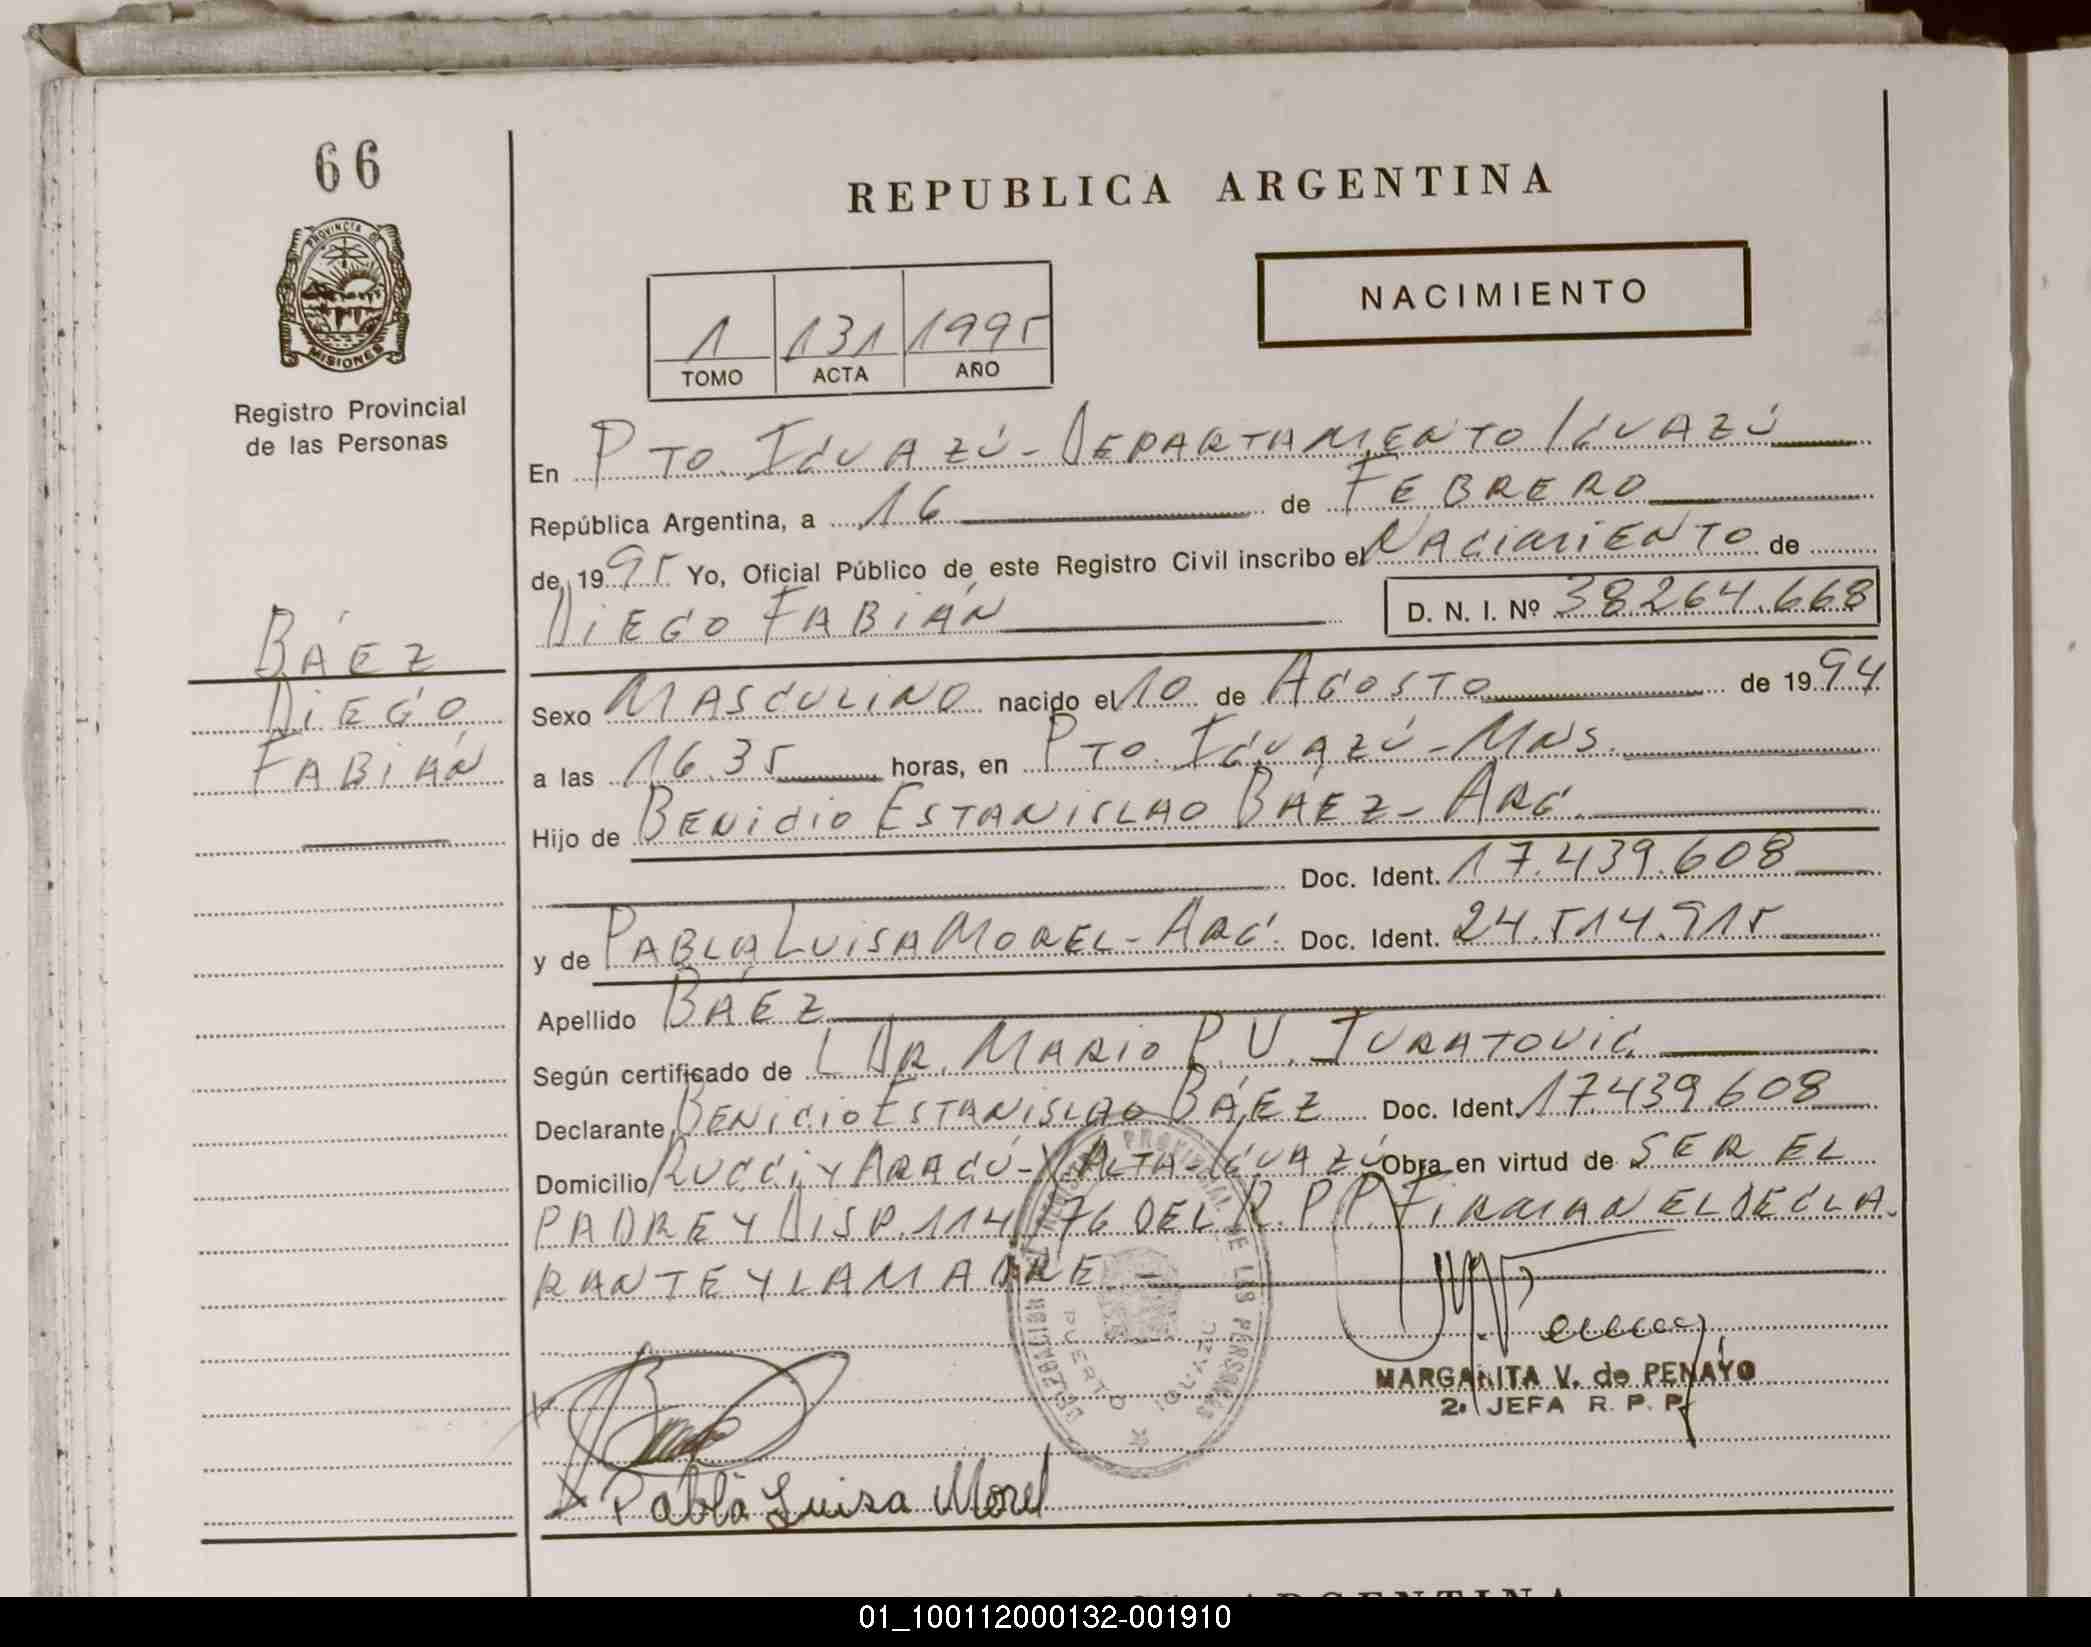 66
REPUBLICA ARGENTINA
PROVINCIA DE
MISIONES
NACIMIENTO
1 131 1995
TOMO ACTA AÑO
Registro Provincial
de las Personas
En PTO. IGUAZÚ - DEPARTAMENTO IGUAZÚ
República Argentina, a 16 de FEBRERO
de 1995 Yo, Oficial Público de este Registro Civil inscribo el NACIMIENTO de
DIEGO FABIÁN D. N. I. Nº 38264.668
BÁEZ
DIEGO
FABIÁN
Sexo MASCULINO nacido el 10 de AGOSTO de 1994
a las 16.35 horas, en PTO. IGUAZÚ - MNS.
Hijo de BENICIO ESTANISLAO BÁEZ - ARG.
Doc. Ident. 17.439.608
y de PABLA LUISA MOREL - ARG. Doc. Ident. 24.514.915
Apellido BÁEZ
Según certificado de L DR. MARIO P. U. JURATOVIC
Declarante BENICIO ESTANISLAO BÁEZ Doc. Ident. 17.439.608
Domicilio RUCCI Y ARACÚ - V. ALTA - IGUAZÚ Obra en virtud de SER EL
PADRE Y DISP. 114/76 DEL R. P. P. FIRMAN EL DECLA-
RANTE Y LA MADRE -
PROVINCIAL DE LAS PERSONAS
PUERTO IGUAZU
MARGARITA V. de PENAYO
2. JEFA R. P. P.
Pabla Luisa Morel
ARGENTINA
01_100112000132-001910